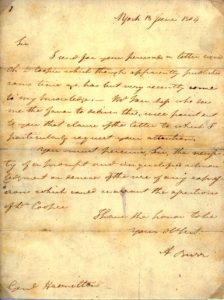 N York 18 June 1804
Sir
I send for your perusal a letter
Cooper which though apparently published
some time ago has but very recently come
to my knowledge. Mr Van Ness who does
me the favor to deliver this, will point out
to you that clause of the letter to which I
particularly request your attention,
You must perceive, Sir, the necessity
of a prompt and unqualified acknowledgment
or denial of the use of any expressions
which could warrant the assertions of
Dr Cooper
I have the honor to be
Your Obt st
A Burr
Genl Hamilton